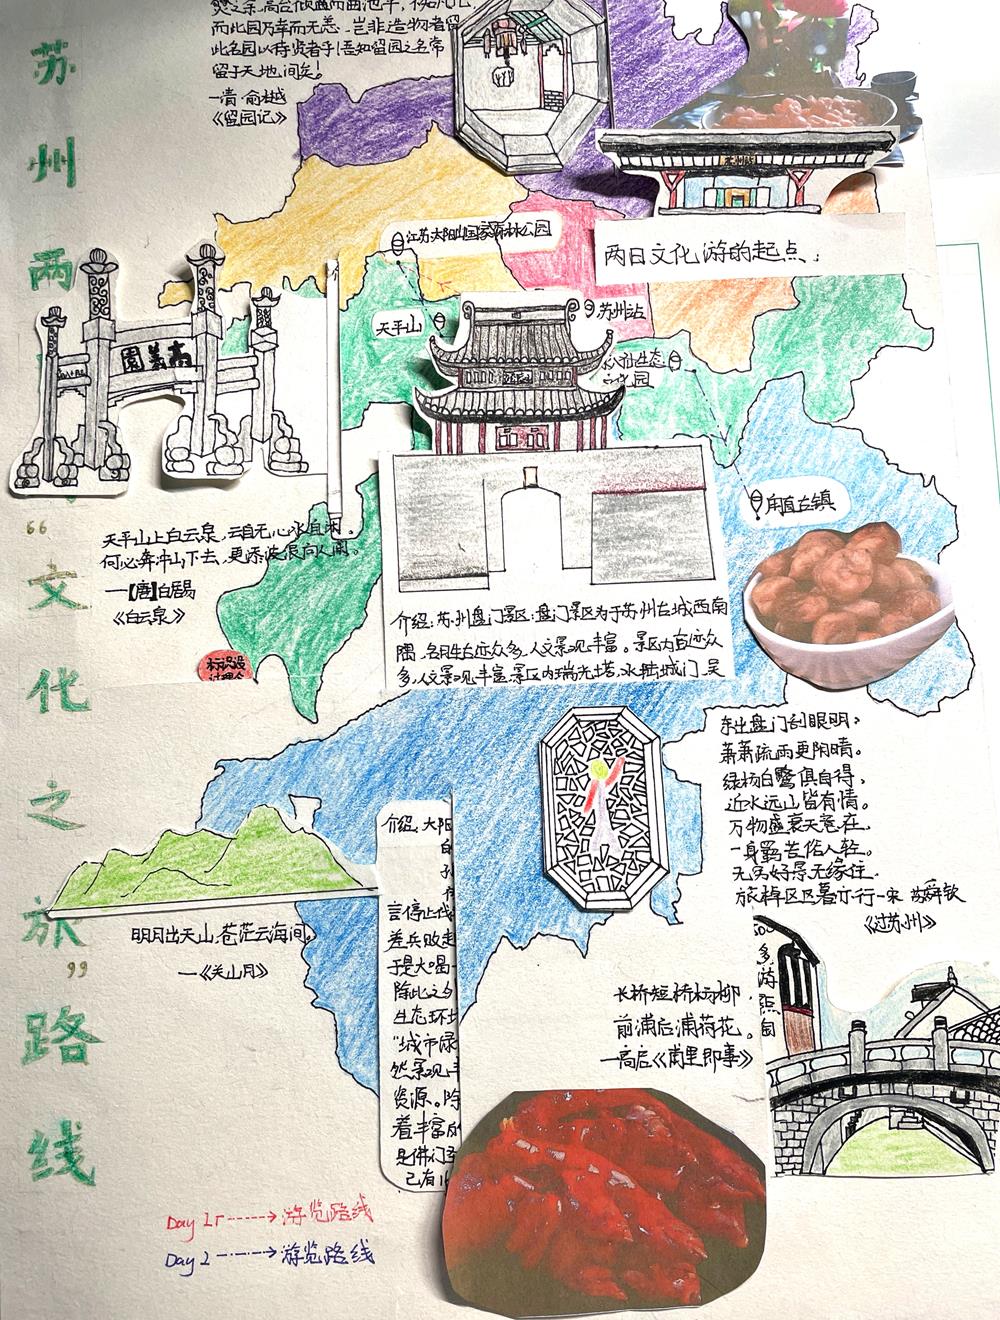 苏州两日“文化之旅”路线
此名园以待贤者乎!吾知留园之名常
留于天地间矣!
—清·俞樾
《留园记》
苏州站
两日文化游的起点:
江苏大阳山国家森林公园
苏州站
天平山
生态
园
高义園
甪直古镇
天平山上白云泉,云自无心水自闲。
何必奔冲山下去,更添波浪向人间。
—【唐】白居易
《白云泉》
标识设
介绍:苏州盘门景区:盘门景区为于苏州古城西南
隅,名胜古迹众多,人文景观丰富。景区内古迹众
多,人文景观丰富,景区内瑞光塔,水陆城门、吴
东出盘门刮眼明,
萧萧疏雨更阴晴。
绿杨白鹭俱自得,
近水远山皆有情。
万物盛衰天意在,
一身羁苦俗人轻。
无穷好景无缘住,
旅棹区区暮亦行—宋 苏舜钦
《过苏州》
介绍:大阳
言停止伐
差兵败走
于是大喝一
除此之外
生态环境
“城市绿
然景观丰
资源。除
着丰富的
是佛门圣
己有
明月出天山,苍茫云海间。
—《关山月》
多
游
点
长桥短桥杨柳,
前浦后浦荷花。
—高启《甫里即事》
Day 1 ┄┄→ 游览路线
Day 2 -·-·-→ 游览路线